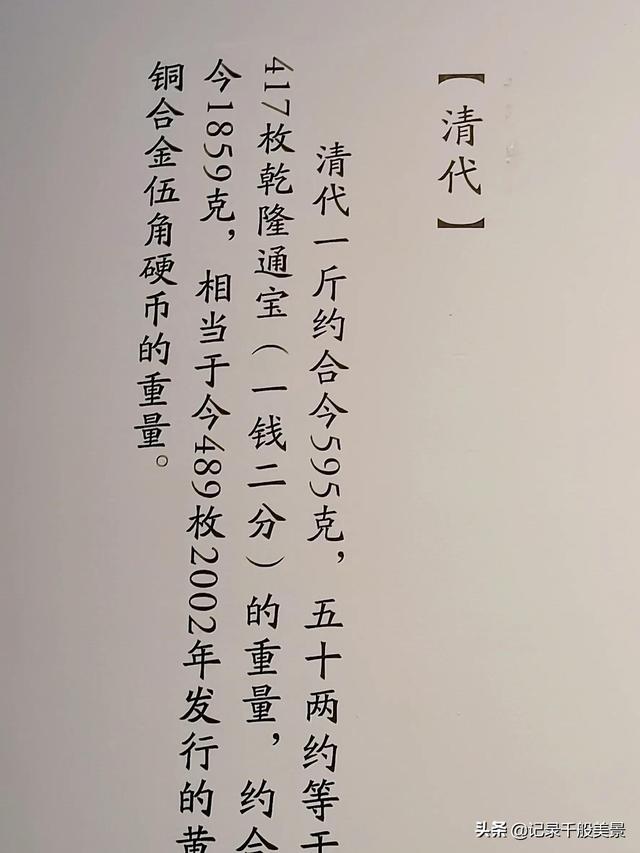 【清代】
清代一斤约合今595克，五十两约等于
417枚乾隆通宝（一钱二分）的重量，约合
今1859克，相当于今489枚2002年发行的黄
铜合金伍角硬币的重量。
头条 @记录千股美景